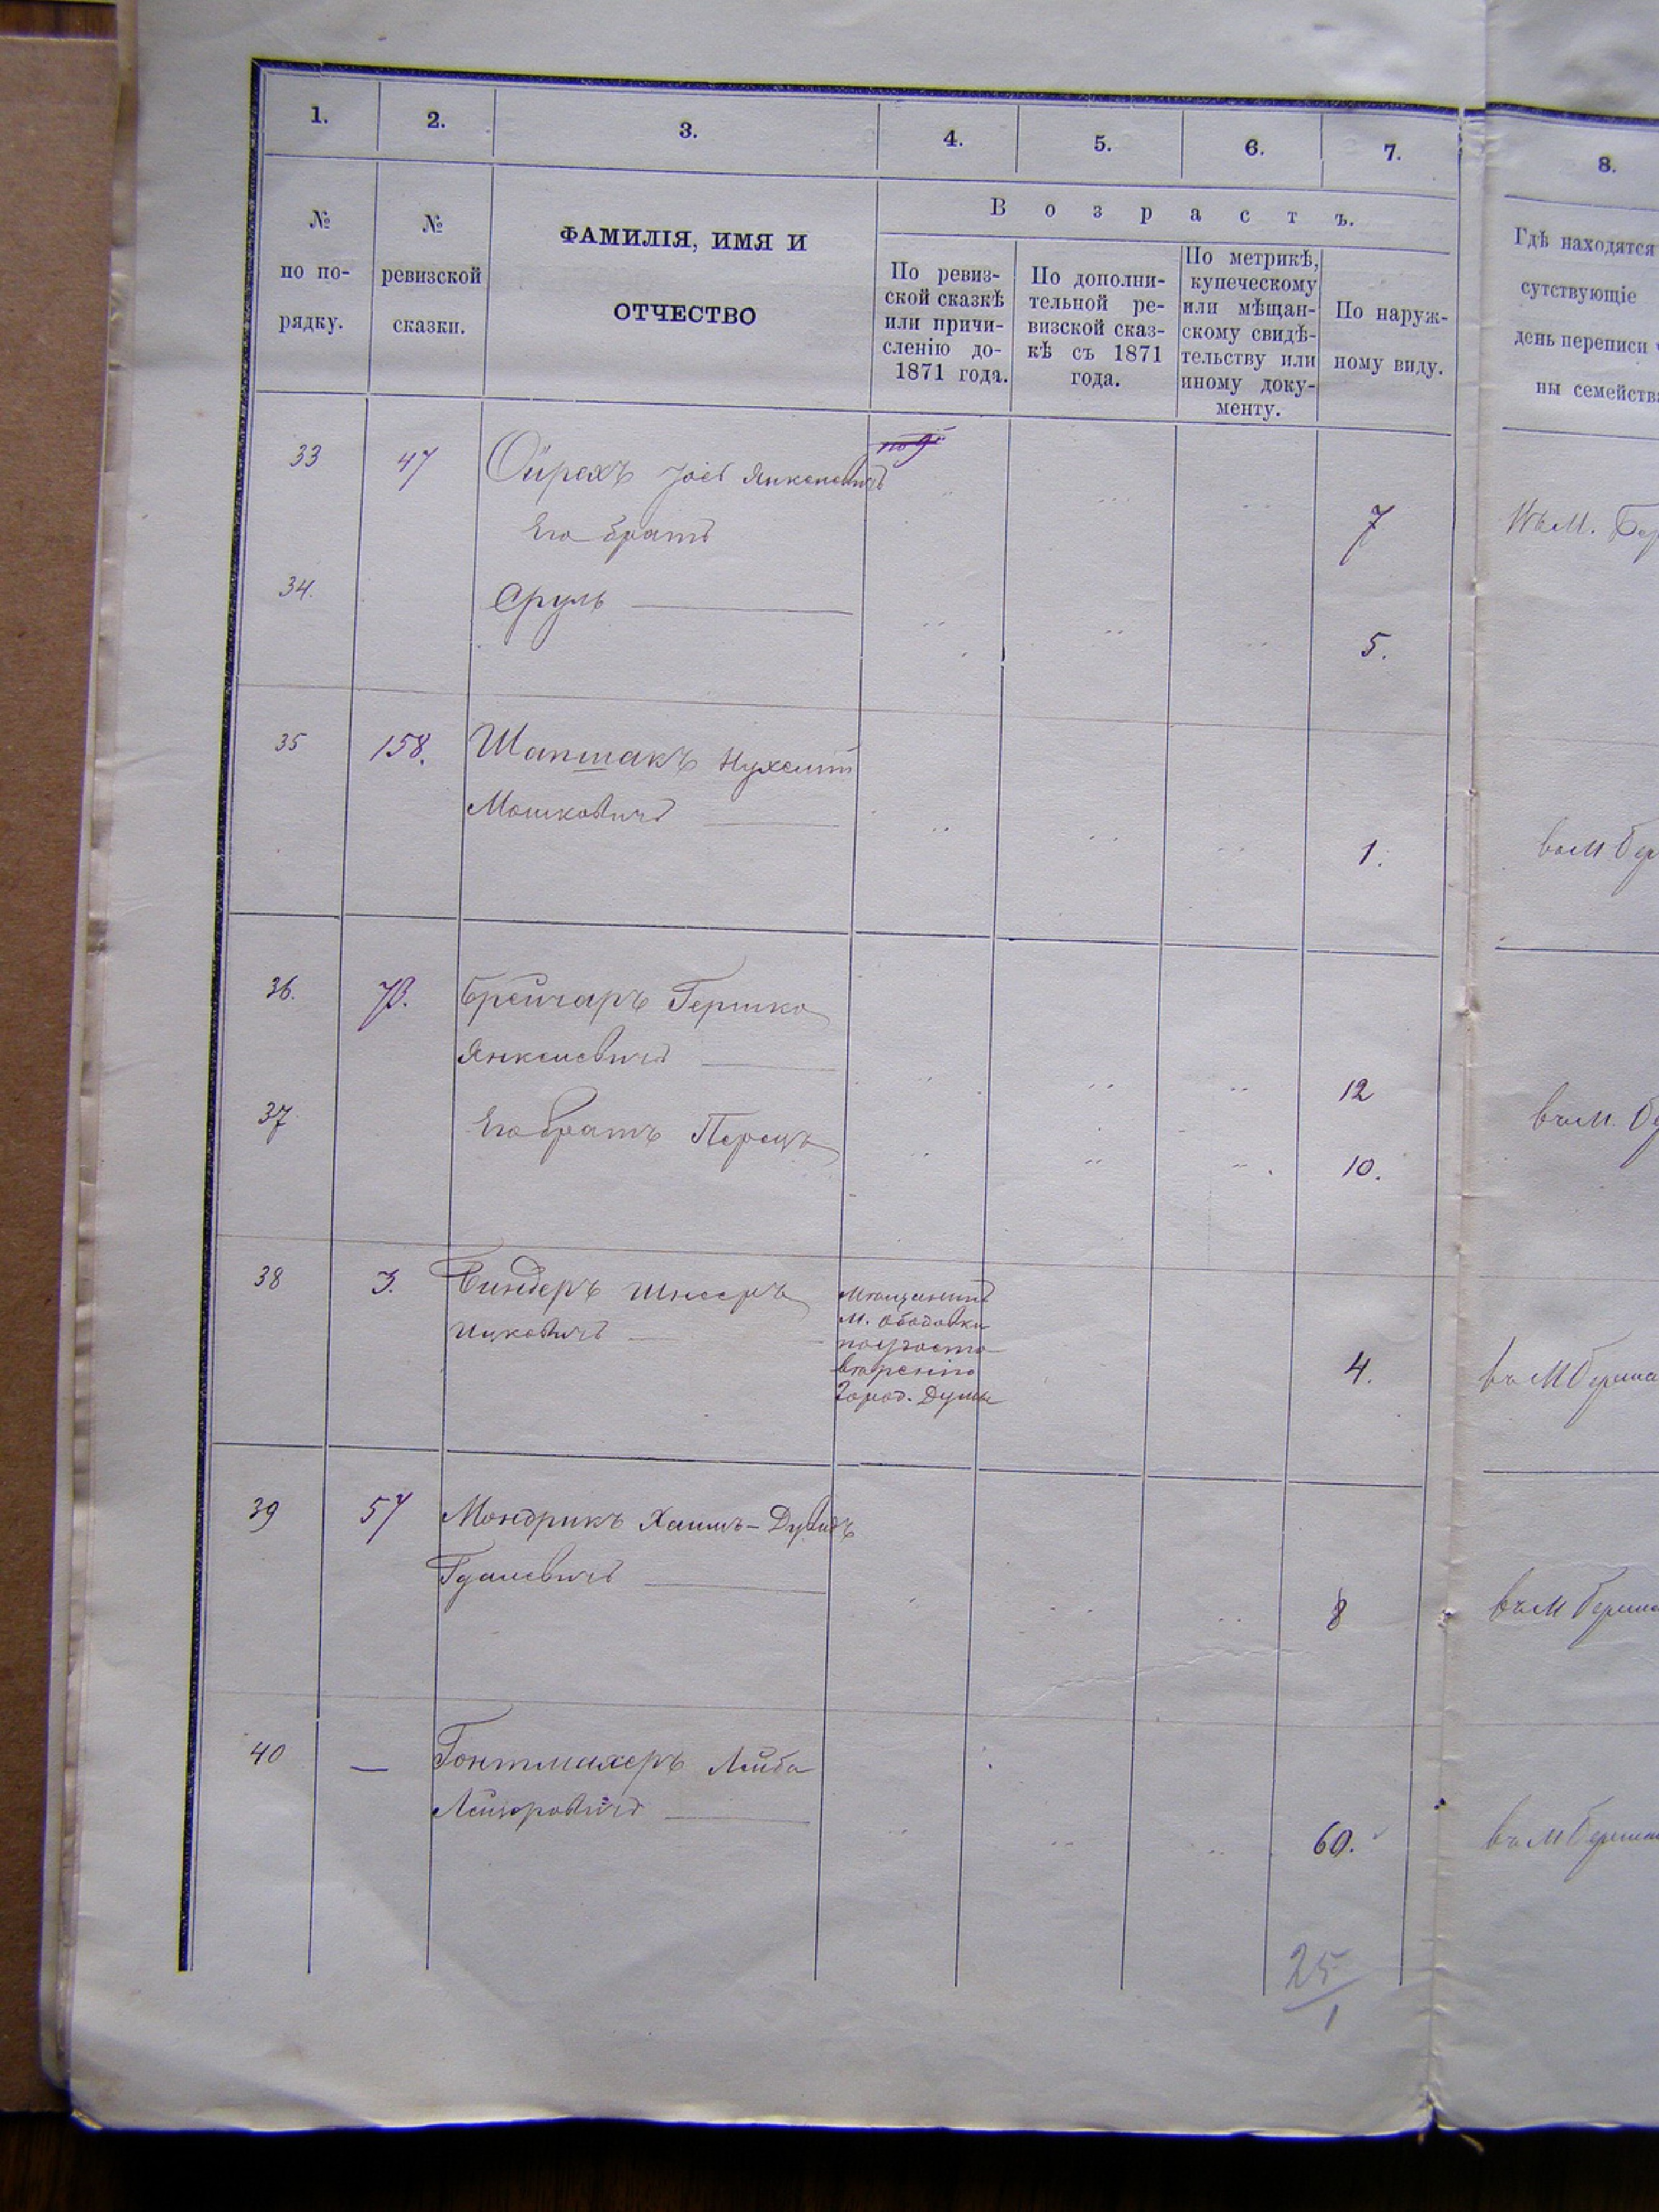 1. 2. 3. 4. 5. 6. 7. 8.
В о з р а с т ъ.
№ по порядку.
№ ревизской сказки.
ФАМИЛІЯ, ИМЯ И
ОТЧЕСТВО
По ревиз-
ской сказкѣ
или причи-
сленію до-
1871 года.
По дополни-
тельной ре-
визской сказ-
кѣ съ 1871
года.
По метрикѣ,
купеческому
или мѣщан-
скому свидѣ-
тельству или
иному доку-
менту.
По наруж-
ному виду.
Гдѣ находятся
сутствующіе
день переписи
ны семейства
33 47 Ойрахъ Янкелевичъ
Его братъ 7 Въ М. Бер
34. Сруль 5.
35 158. Шапшакъ Нухемъ
Мошковичъ 1. въ М Бер
36. 73. Брейчаръ Гершко
Янкелевичъ 12 въ М. Бе
37 Его братъ Перецъ 10.
38 3. Биндеръ Шнееръ Мѣщанинъ
Ицковичъ М. Ободовки
по удосто-
вѣренію 4. въ М Берша
Город. Думы
39 57 Мондрикъ Хаимъ-Дувидъ
Гдалевичъ 8 въ М Берша
40 — Гонтмахеръ Лейба
Лейзоровичъ 60. въ М Берша
25
1